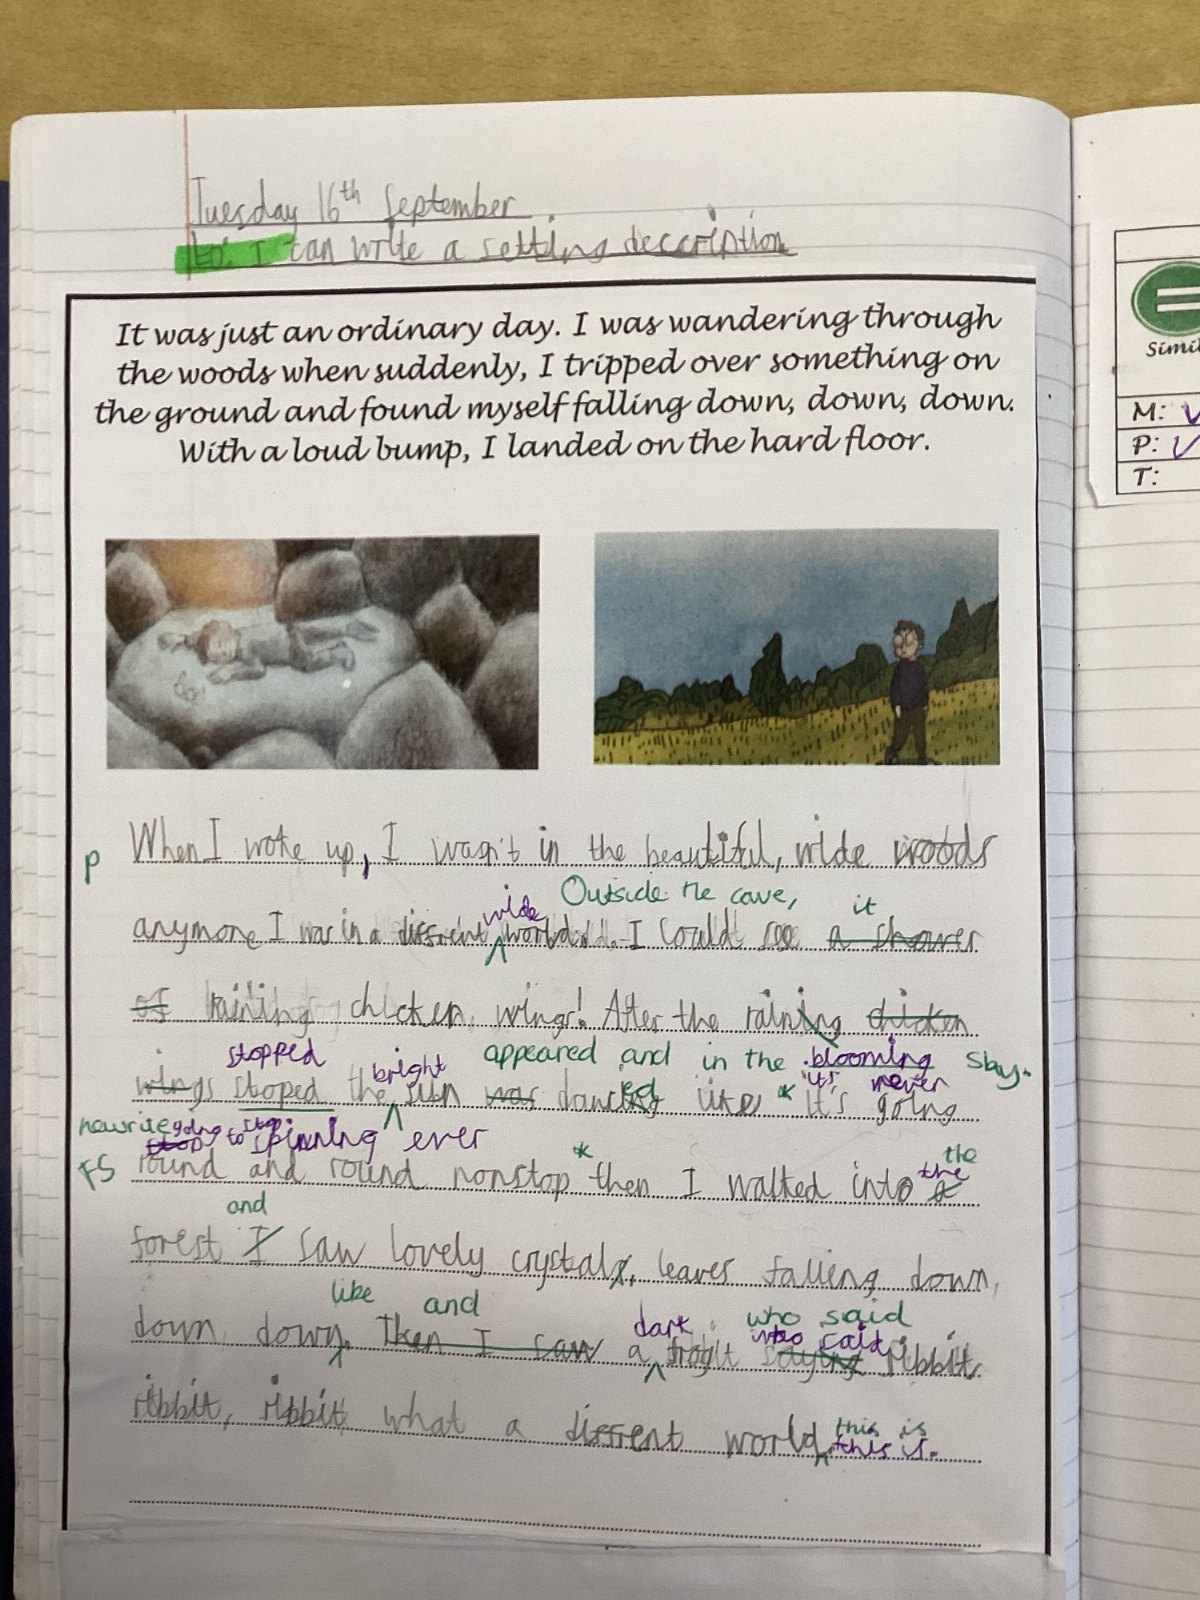 Tuesday 16th September
LO: I can write a setting decription
It was just an ordinary day. I was wandering through
the woods when suddenly, I tripped over something on
the ground and found myself falling down, down, down.
With a loud bump, I landed on the hard floor.
Simil
M:
P:
T:
P
When I woke up, I wasn't in the beautiful, wide woods
wide Outside the cave, it
anymore I was in a diffrent world. I could see a shower
of raining chicken wings! After the raining chicken
stopped bright appeared and in the blooming sky.
wings stoped the sun was dancing like it's going
its never
rewrite going to stop spinning ever
FS round and round nonstop then I walked into a
the the
and
forest I saw lovely crystals, leaves falling down,
like and dark who said
down, down, Then I saw a frog saying ribbit
who said
ribbit, ribbit what a diffrent world this is
this is.